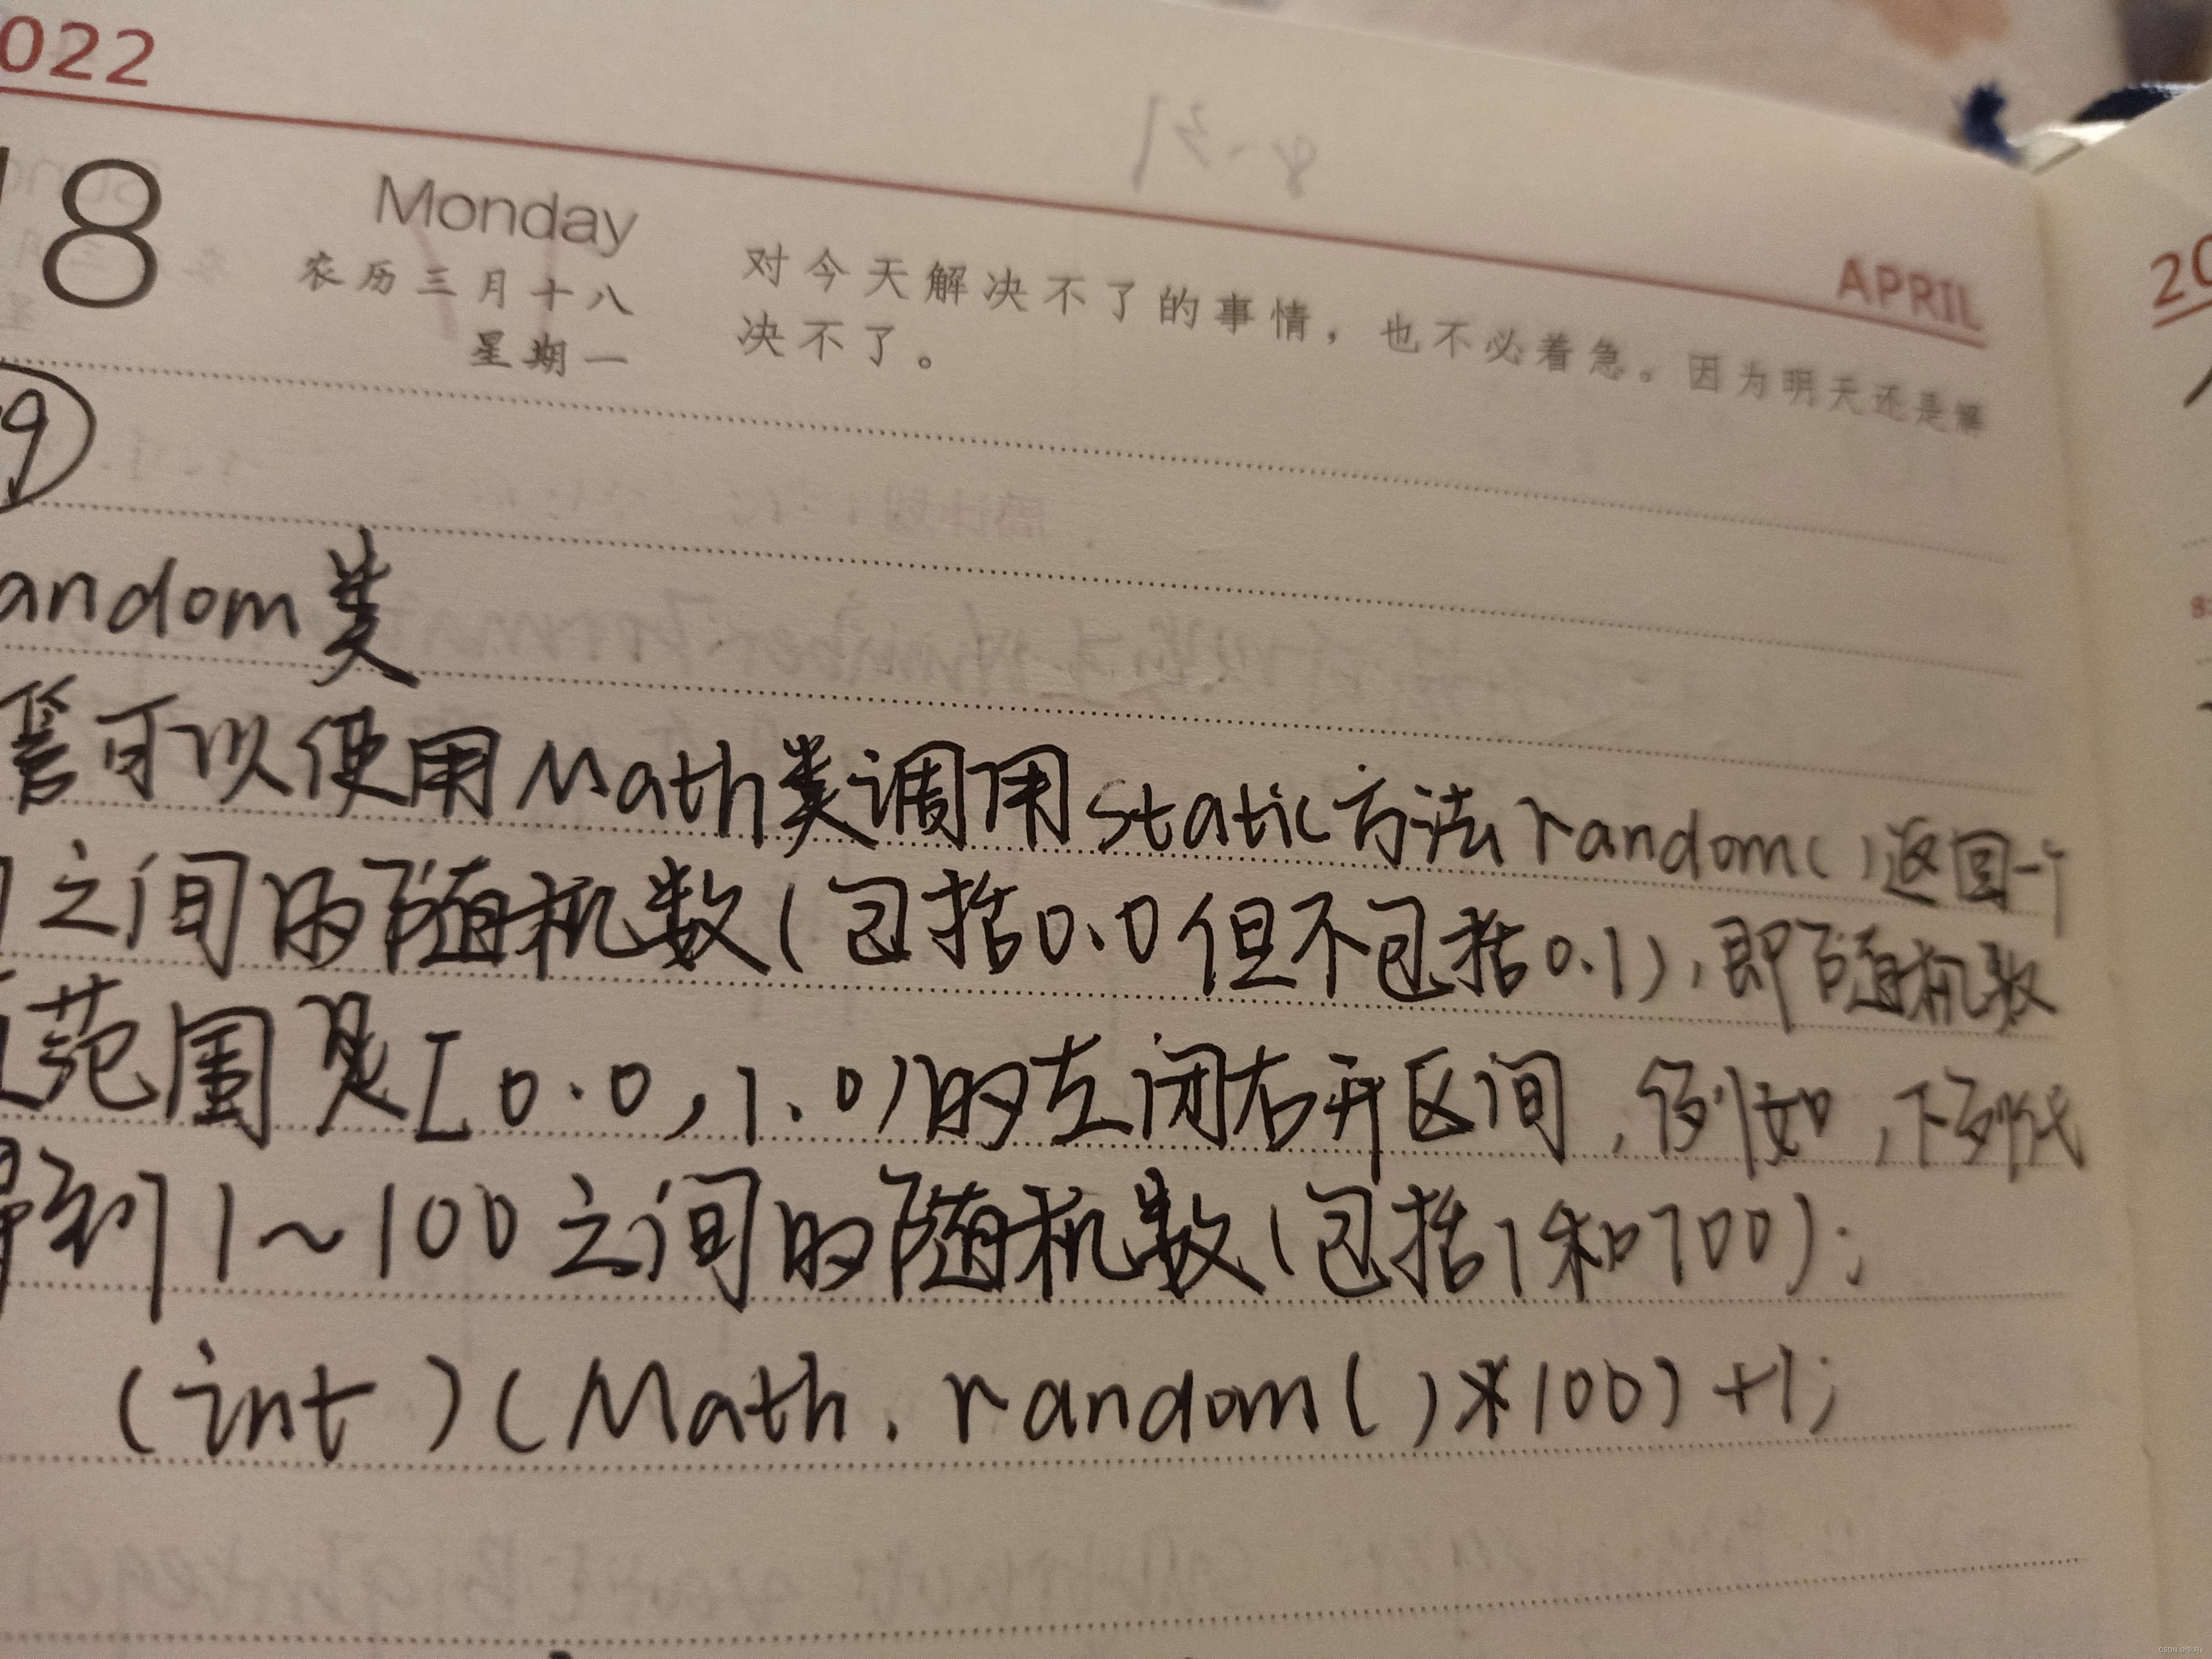 022
APRIL
20
18
Monday
农历三月十八
星期一
对今天解决不了的事情，也不必着急。因为明天还是解
决不了。
9
andom类
管可以使用Math类调用static方法random()返回一个
之间的随机数(包括0.0但不包括0.1),即随机数
范围是[0.0,1.0)的左闭右开区间,例如,下列代
得到1~100之间的随机数(包括1和100);
(int)(Math.random()*100)+1;